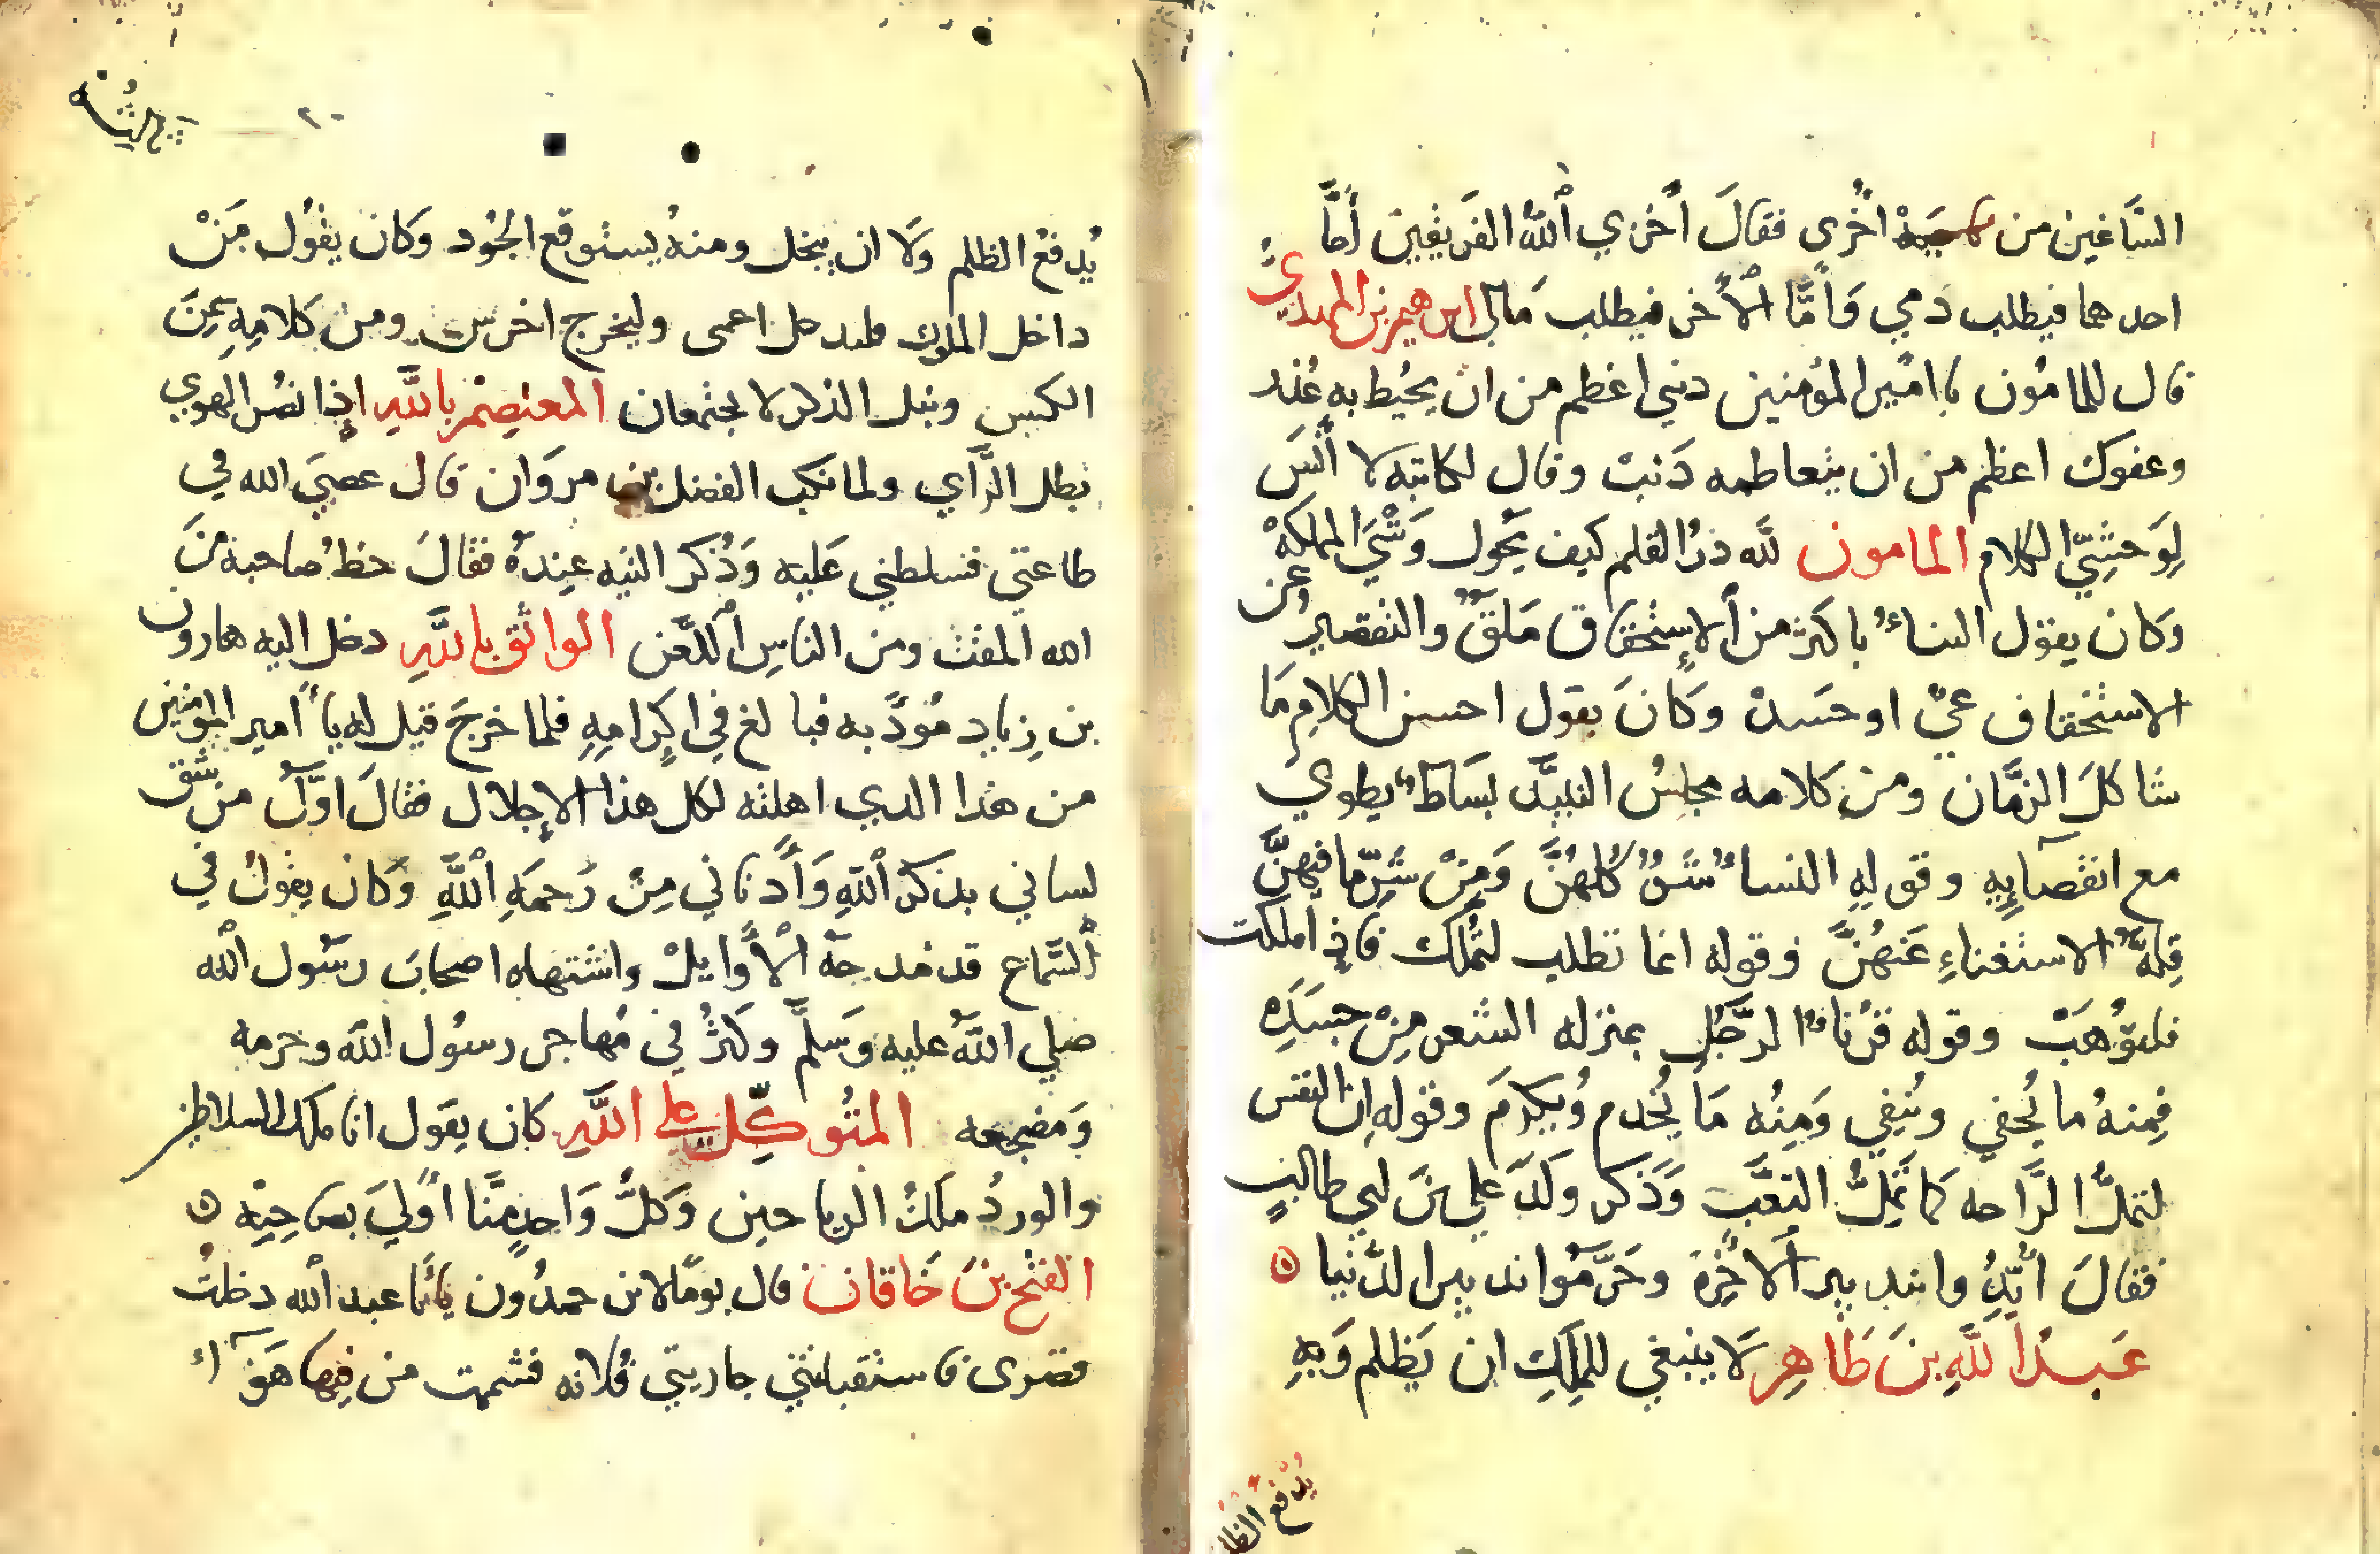 الشاغبين من ناحية أخرى فقالَ أخزي ٱللّٰه الفَريقين أمَّا
احدهما فيطلب دمي وَأمَّا ٱلأخر فيطلب مَالي ابرهيم بن المهدي
قال للمامُون يا امير المؤمنين ذنبي اعظم من ان يحُيط به عُذر
وعفوك اعظم من ان يتعاظمه ذَنب وقال لكاتبه لا أنسَ
لِوَحشِيّ الكلام المامون للّه درُ القلم كيف يحُول وَشْيَ المملكة
وكان يقول الثناءُ باكثر من ألاِستحقاق مَلَقٌ والتقصير عن
الاستحقاق عيٌ او حَسدٌ وكانَ يقول احسن الكلامِ مَا
شاكلَ الزمَّان ومن كلامه مجلسُ النبيذ بسَاطٌ يطوي
مع انقصَآئِهِ وقولهِ النساءُ شَرٌ كُلهُنَّ وَمِنْ شرِّما فيهنَّ
قِلةُ الاستغناءِ عَنهُنَّ وقوله انما تطلب لتمُلك فاذِا ملكت
فلتوُهَبْ وقوله قرناءُ الرَّجُلِ بمنزله الشعر مِنْ جسَدِهِ
فِمنهُ ما يُحفي وينُفي وَمِنُه مَا يُخدم وُيكرمَ وقوله اِن النفس
لتملُّ الرَّاحه كما تمَلُّ التعَّب وَذَكر وَلَدَ علي بنَ ابي طالبٍ
فقالَ أيّدُوا بتدبير ألاخِرَة وحَرَّمُوا تدبير الدُّنيا ه
عَبدُ اللّهِ بنَ طَاهِر لَا ينبغي للمِلَكِ ان يَظلم وَبهِ
يُدفع الظلم
٢٠
يُدفعُ الظلم وَلَا ان يبخل ومنهُ يستوقع الجُود وَكان يقُول مَنْ
داخل الملوك فليدخل اعمى وليخرج اخرس ومن كلامِهِ سِمَنَ
الكيس ونبل الذكر لا يجتمعان المعتصِم باللَّهِ إذا نصُر الهوي
بطل الرَّأي ولما نكب الفضل بن مروَان قال عصيَ الله في
طاعتي فسلطني عَليه وَذُكر التيه عِندهُ فقالَ حظُ صاحبه منَ
الله المقت ومن الناسِ ٱللّعَن الواثق باللَّهِ دخل اليه هارون
بن زِياد مُؤدّبه فبالغ في اكِرامِهِ فلما خرجَ قيل له يا أمير المؤمنين
من هذا الدي اهلته لكل هذا الاِجلال فقالَ اوَّلُ من فتق
لساني بذكر ٱللّهِ وَأدناني مِنْ رَحمَهِ ٱللَّهِ وَكان يقُولُ في
ٱلسَّماع قد مُدحهُ ٱلأوايلْ واشتهاه اصحابَ رسُول ٱللّه
صَلي اللّهُ عليه وَسَلمَّ وكثُر في مُهاجر رسوُل اللّه وحرمه
وَمضجعه المتُوكِّل علي اللَّهِ كان يقول انا ملك السلاطين
والوردُ ملكُ الرياحين وَكلُّ وَاحِدٍ مِنَّا أوليَ بصَاحِبِه ه
الفتح بن خَاقان قال يومًا لابن حمدُون يا أبا عبد ٱللّه دخلتُ
قصرى فاستقبلتني جاريتي فُلانه فشممت من فِيها هَوآءً